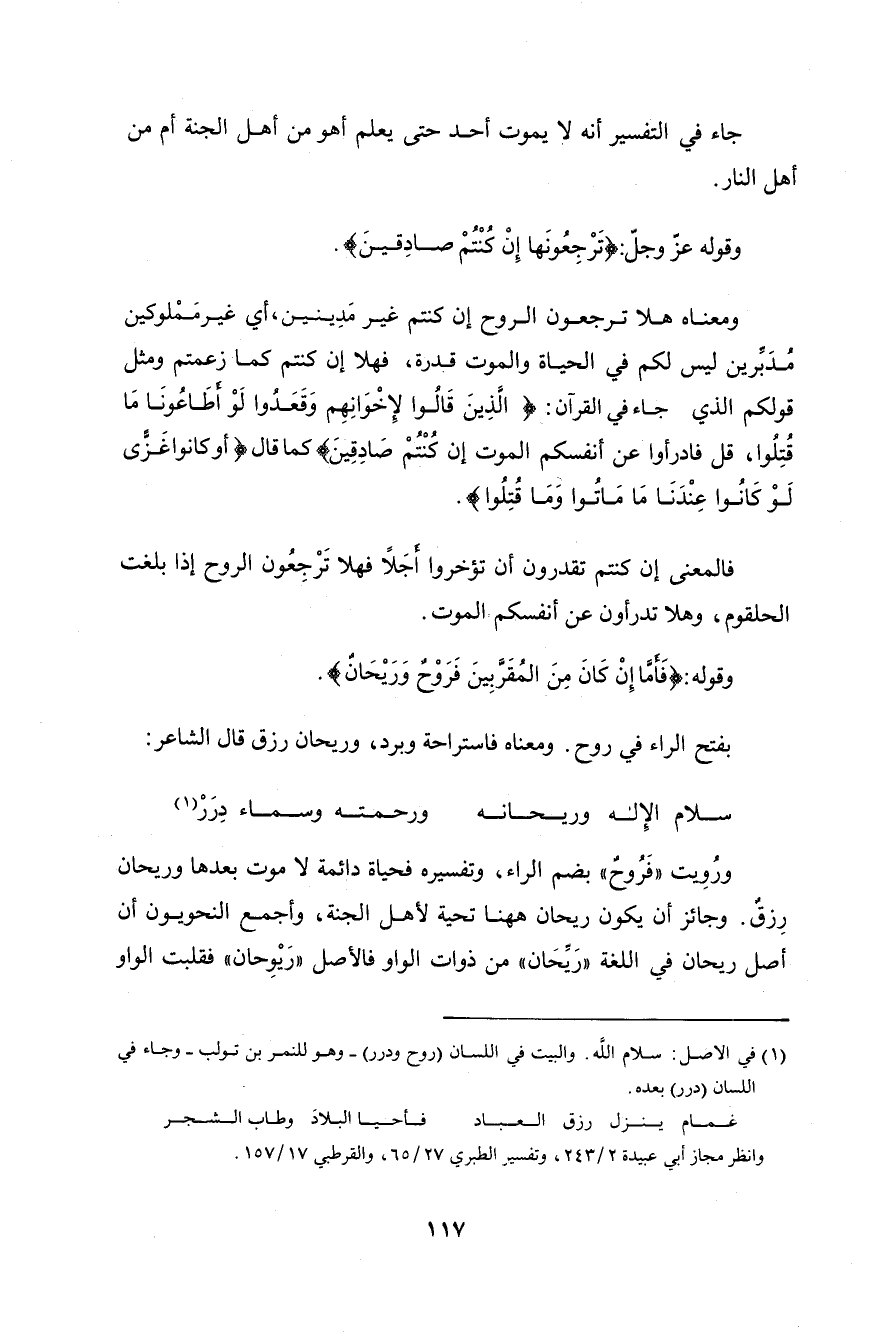 جاء في التفسير أنه لا يموت أحد حتى يعلم أهو من أهل الجنة أم من
أهل النار.
وقوله عزّ وجلّ: ﴿تَرْجِعُونَها إِنْ كُنْتُمْ صادِقينَ﴾.
ومعناه هلا ترجعون الروح إن كنتم غير مَدِينين، أي غير مَمْلوكين
مُدَبِّرين ليس لكم في الحياة والموت قدرة، فهلا إن كنتم كما زعمتم ومثل
قولكم الذي جاء في القرآن: ﴿ الَّذِينَ قَالُوا لإِخْوَانِهِم وَقَعَدُوا لَوْ أَطَاعُونَا مَا
قُتِلُوا، قل فادرأوا عن أنفسكم الموت إن كُنْتُمْ صَادِقِينَ﴾ كما قال ﴿أو كانوا غَزًّى
لَوْ كَانُوا عِنْدَنَا مَا مَاتُوا وَمَا قُتِلُوا﴾.
فالمعنى إن كنتم تقدرون أن تؤخروا أَجَلًا فهلا تَرْجِعُون الروح إذا بلغت
الحلقوم، وهلا تدرأون عن أنفسكم الموت.
وقوله: ﴿فَأَمَّا إِنْ كَانَ مِنَ المُقَرَّبِينَ فَرَوْحٌ وَرَيْحَانٌ﴾.
بفتح الراء في روح. ومعناه فاستراحة وبرد، وريحان رزق قال الشاعر:
سلام الإله وريحانه ورحمته وسماء دِرَرْ(١)
ورُويت «فَرُوحٌ» بضم الراء، وتفسيره فحياة دائمة لا موت بعدها وريحان
رِزقٌ. وجائز أن يكون ريحان ههنا تحية لأهل الجنة، وأجمع النحويون أن
أصل ريحان في اللغة «رَيِّحَان» من ذوات الواو فالأصل «رَيْوِحان» فقلبت الواو
(١) في الاصل: سلام اللَّه. والبيت في اللسان (روح ودرر) ـ وهو للنمر بن تولب ـ وجاء في
اللسان (درر) بعده.
غمام ينزل رزق العباد فأحيا البلادَ وطاب الشجر
وانظر مجاز أبي عبيدة ٢/٢٤٣، وتفسير الطبري ٢٧/٦٥، والقرطبي ١٧/١٥٧.
١١٧